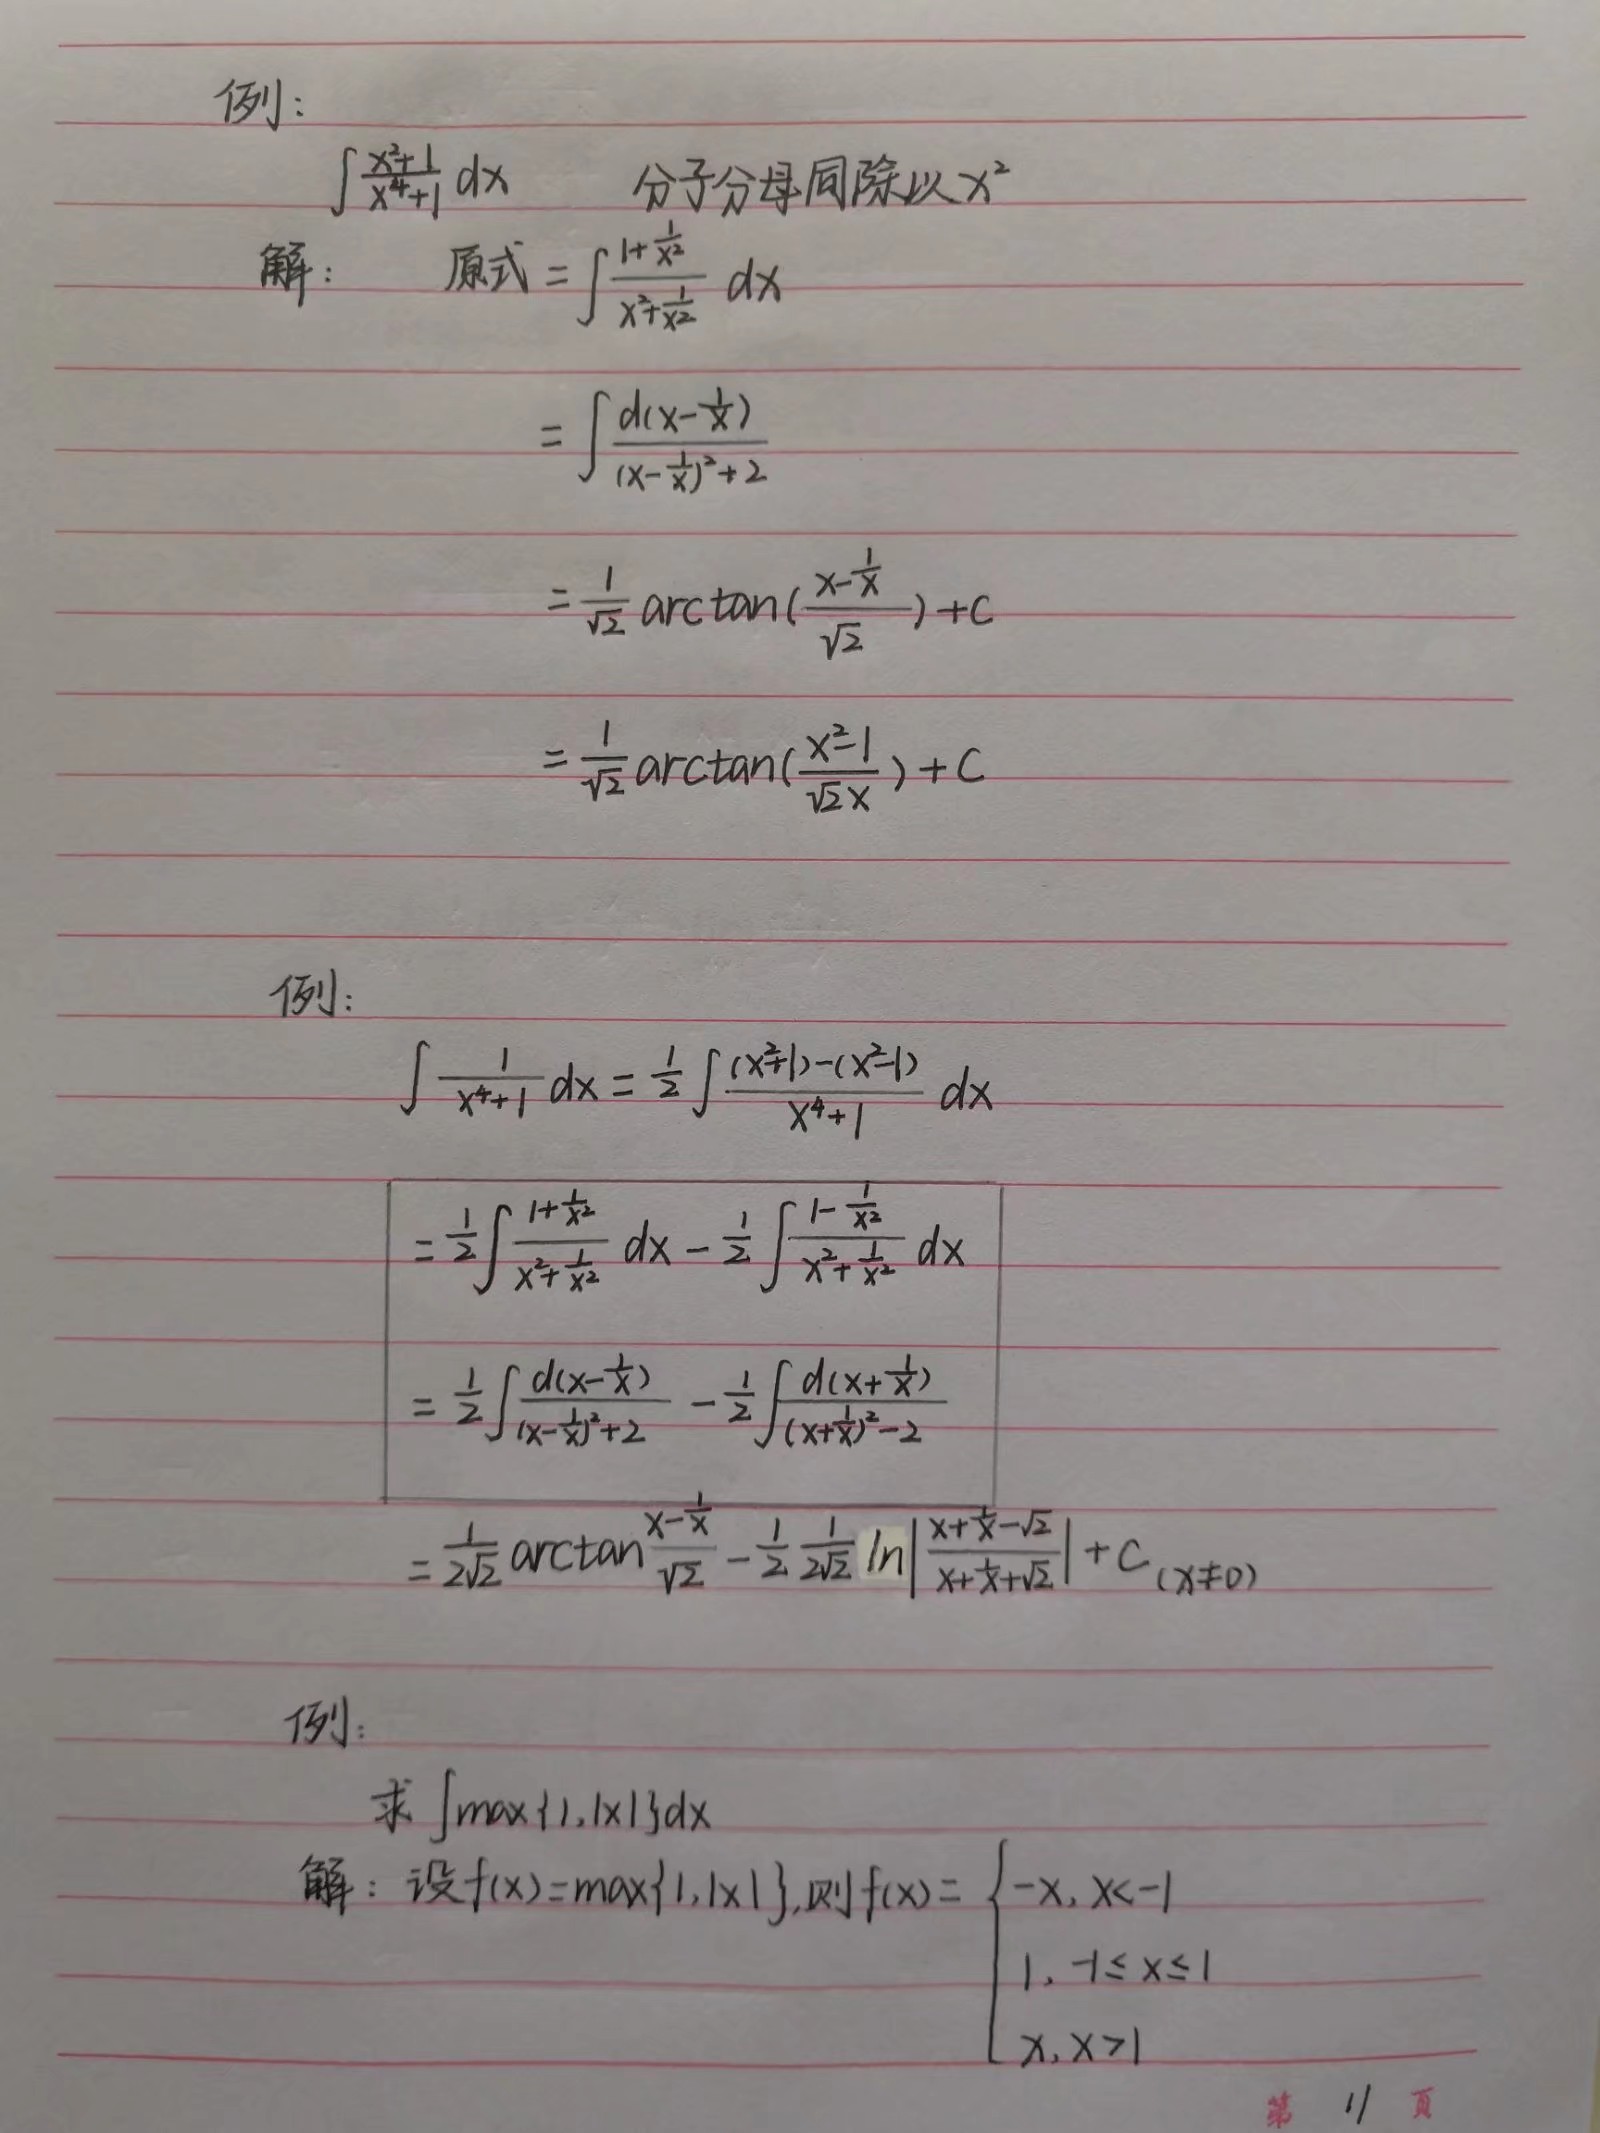 例:
∫ (x²+1)/(x⁴+1) dx 分子分母同除以 x²
解: 原式 = ∫ (1+1/x²)/(x²+1/x²) dx
= ∫ d(x-1/x)/((x-1/x)²+2)
= 1/√2 arctan((x-1/x)/√2)+C
= 1/√2 arctan((x²-1)/(√2x))+C
例:
∫ 1/(x⁴+1) dx = 1/2 ∫ ((x²+1)-(x²-1))/(x⁴+1) dx
= 1/2 ∫ (1+1/x²)/(x²+1/x²) dx - 1/2 ∫ (1-1/x²)/(x²+1/x²) dx
= 1/2 ∫ d(x-1/x)/((x-1/x)²+2) - 1/2 ∫ d(x+1/x)/((x+1/x)²-2)
= 1/(2√2) arctan (x-1/x)/√2 - 1/2 1/(2√2) ln|(x+1/x-√2)/(x+1/x+√2)| + C (x≠0)
例:
求 ∫max{1,|x|}dx
解: 设f(x)=max{1,|x|},则f(x)= { -x, x<-1
1, -1≤x≤1
x, x>1
第 11 頁